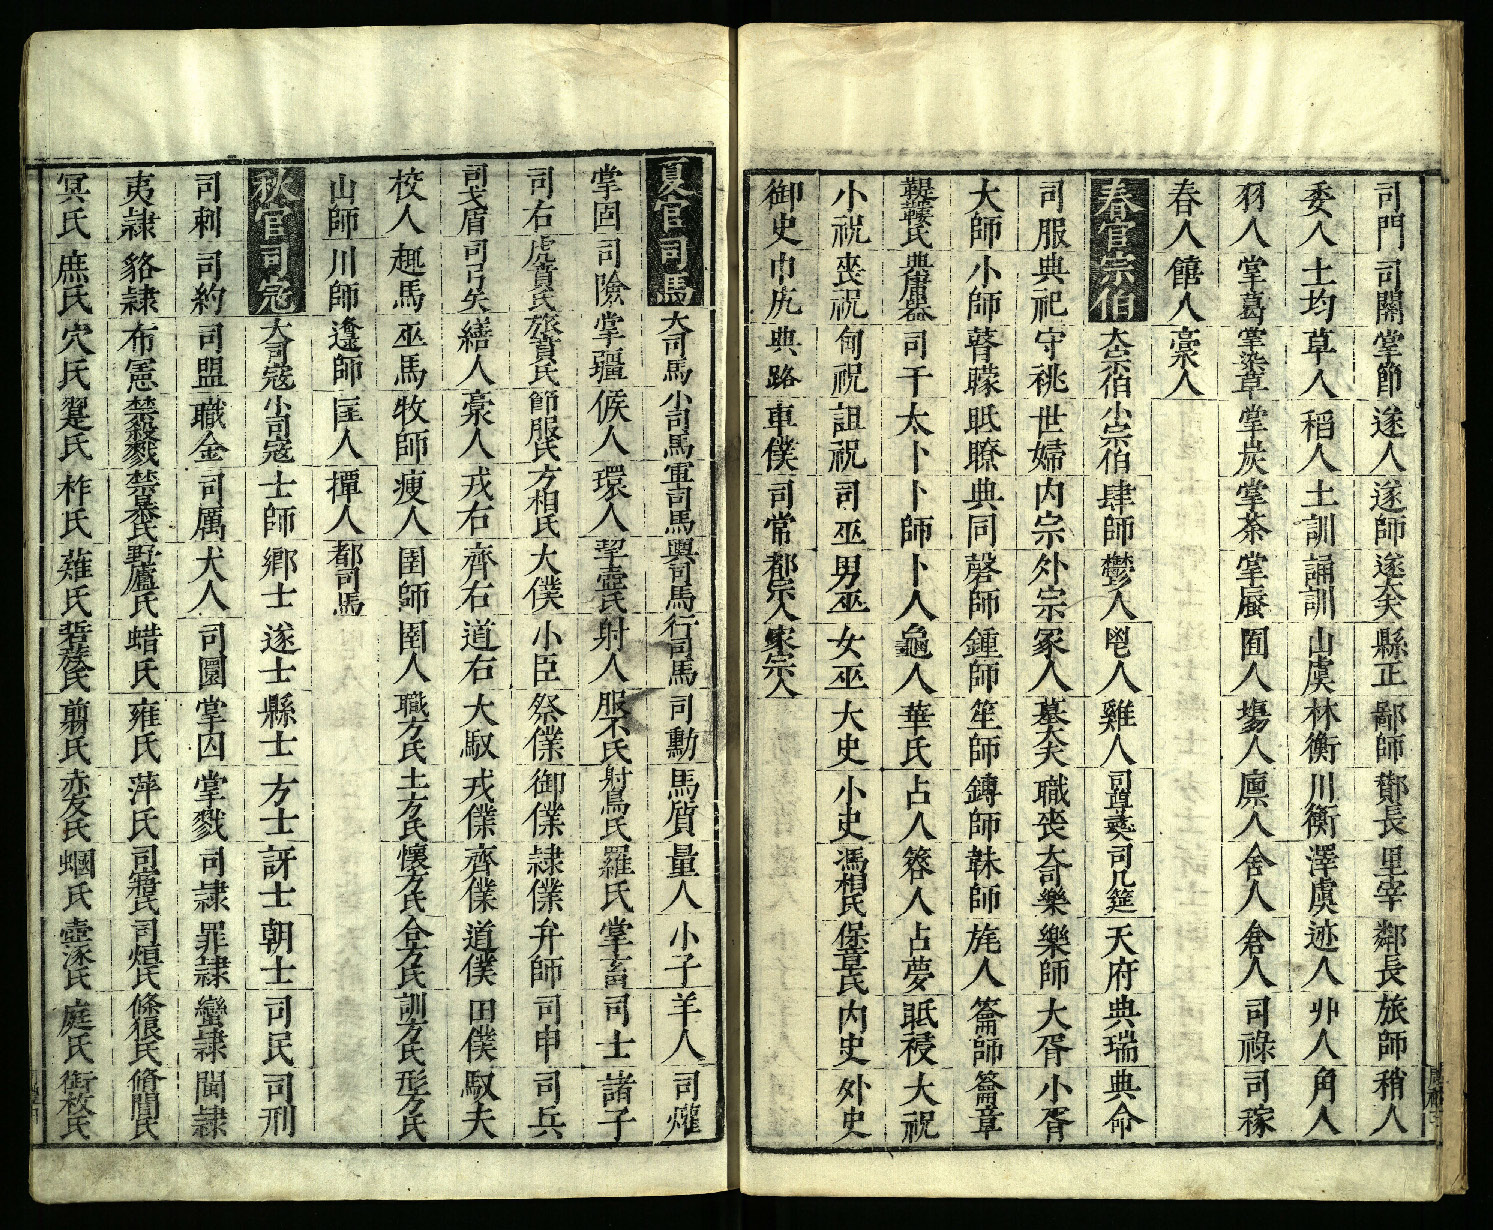 司門 司關 掌節 遂人 遂師 遂大夫 縣正 鄙師 酇長 里宰 鄰長 旅師 稍人
委人 土均 草人 稻人 土訓 誦訓 山虞 林衡 川衡 澤虞 迹人 丱人 角人
羽人 掌葛 掌染草 掌炭 掌荼 掌蜃 囿人 塲人 廩人 舍人 倉人 司祿 司稼
舂人 饎人 稾人
春官宗伯 大宗伯 小宗伯 肆師 鬱人 鬯人 雞人 司尊彝 司几筵 天府 典瑞 典命
司服 典祀 守祧 世婦 內宗 外宗 冢人 墓大夫 職喪 大司樂 樂師 大胥 小胥
大師 小師 瞽矇 眡瞭 典同 磬師 鍾師 笙師 鏄師 韎師 旄人 籥師 籥章
鞮鞻氏 典庸器 司干 太卜 卜師 卜人 龜人 華氏 占人 簭人 占夢 眡祲 大祝
小祝 喪祝 甸祝 詛祝 司巫 男巫 女巫 大史 小史 馮相氏 保章氏 內史 外史
御史 巾車 典路 車僕 司常 都宗人 家宗人
夏官司馬 大司馬 小司馬 軍司馬 輿司馬 行司馬 司勳 馬質 量人 小子 羊人 司爟
掌固 司險 掌疆 候人 環人 挈壺氏 射人 服不氏 射鳥氏 羅氏 掌畜 司士 諸子
司右 虎賁氏 旅賁氏 節服氏 方相氏 大僕 小臣 祭僕 御僕 隸僕 弁師 司甲 司兵
司戈盾 司弓矢 繕人 稾人 戎右 齊右 道右 大馭 戎僕 齊僕 道僕 田僕 馭夫
校人 趣馬 巫馬 牧師 廋人 圉師 圉人 職方氏 土方氏 懷方氏 合方氏 訓方氏 形方氏
山師 川師 邍師 匡人 撢人 都司馬
秋官司宼 大司寇 小司寇 士師 鄉士 遂士 縣士 方士 訝士 朝士 司民 司刑
司刺 司約 司盟 職金 司厲 犬人 司圜 掌囚 掌戮 司隷 罪隷 蠻隷 閩隷
夷隷 貉隷 布憲 禁殺戮 禁暴氏 野廬氏 蜡氏 雍氏 萍氏 司寤氏 司烜氏 條狼氏 脩閭氏
冥氏 庶氏 穴氏 翨氏 柞氏 薙氏 硩蔟氏 翦氏 赤犮氏 蟈氏 壺涿氏 庭氏 銜枚氏